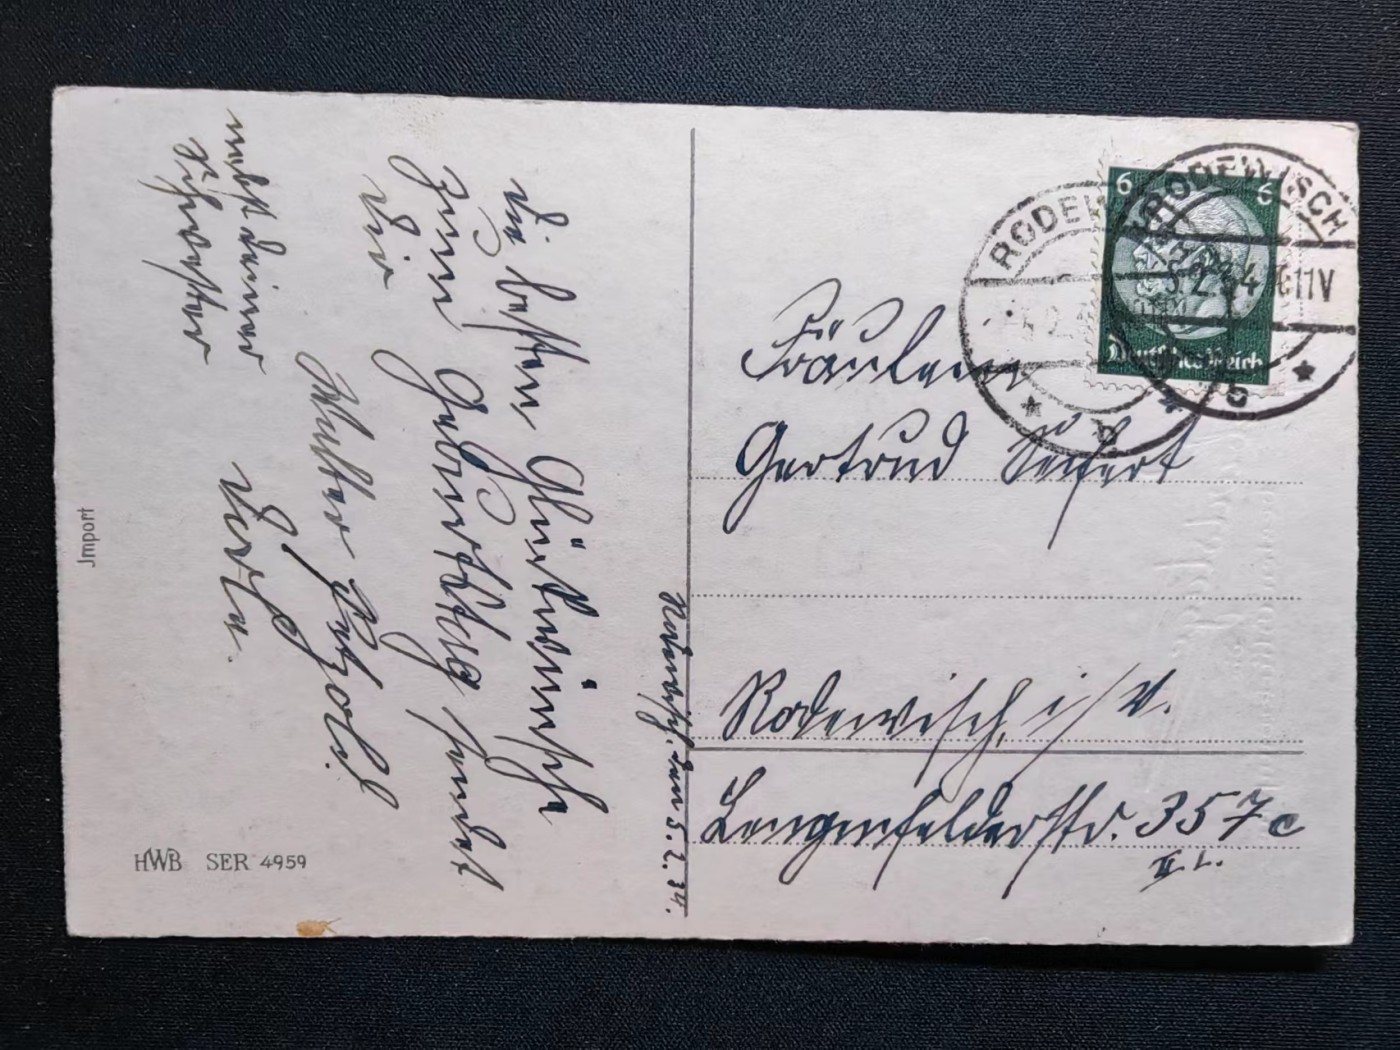 Rodewisch, den 5.2.34.
die besten Glückwünsche
zum Geburtstag sendet
Dir
Walter Petzold.
nebst deiner
Schwester
RODEWISCH
5.2.34 11V
b
RODEW
b
6 6
Deutsches Reich
Fräulein
Gertrud Seifert
Rodewisch i/V.
Lengenfelderstr. 357c
II. L.
Import
HWB SER 4959